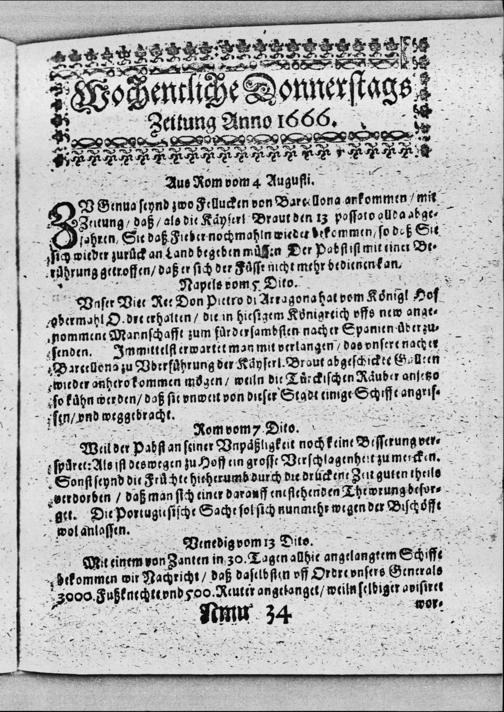 Wochentliche Donnerstags
Zeitung Anno 1666.
Aus Rom vom 4 Augusti.
ZV Genua seynd zwo Fellucken von Barcellona ankommen / mit
Zeitung / daß / als die Käyserl. Braut den 13 passato allda abge-
fahren / Sie daß Fieber nochmahln wieder bekommen / so daß Sie
sich wieder zurück an Land begeben müssen Der Pabst ist mit einer Be-
rührung getroffen / daß er sich der Füsse nicht mehr bedienen kan.
Napels vom 5 Dito.
Vnser Vice Re Don Pietro di Arragona hat vom Königl Hof
abermahl Ordre erhalten / die in hiesigem Königreich vffs new ange-
nommene Mannschafft zum fürdersambsten nacher Spanien überzu-
senden. Immittelst erwartet man mit verlangen / das vnsere nacher
Barcellona zu Vberführung der Käyserl. Braut abgeschickte Galleen
wieder anhero kommen mögen / weiln die Türckischen Räuber anjetzo
so kühn werden / daß sie vnweit von dieser Stadt einige Schiff angrif-
fen / vnd weggebracht.
Rom vom 7 Dito.
Weil der Pabst an seiner Vnpäßligkeit noch keine Besserung ver-
spüret: Als ist deswegen zu Hoff ein grosse Verschlagenheit zu mercken.
Sonst seynd die Früchte hieherumb durch die druckene Zeit guten theils
verdorben / daß man sich einer darauff entstehenden Thewrung befor-
get. Die Portugiesische Sache sol sich nunmehr wegen der Bischöffe
wol anlassen.
Venedig vom 13 Dito.
Mit einem von Zanten in 30. Tagen allhie angelangtem Schiffe
bekommen wir Nachricht / daß daselbsten vff Ordre vnsers Generals
3000. Fußknechte vnd 500. Reuter angelanget / weiln selbiger avisiret
wor-
Nmr 34